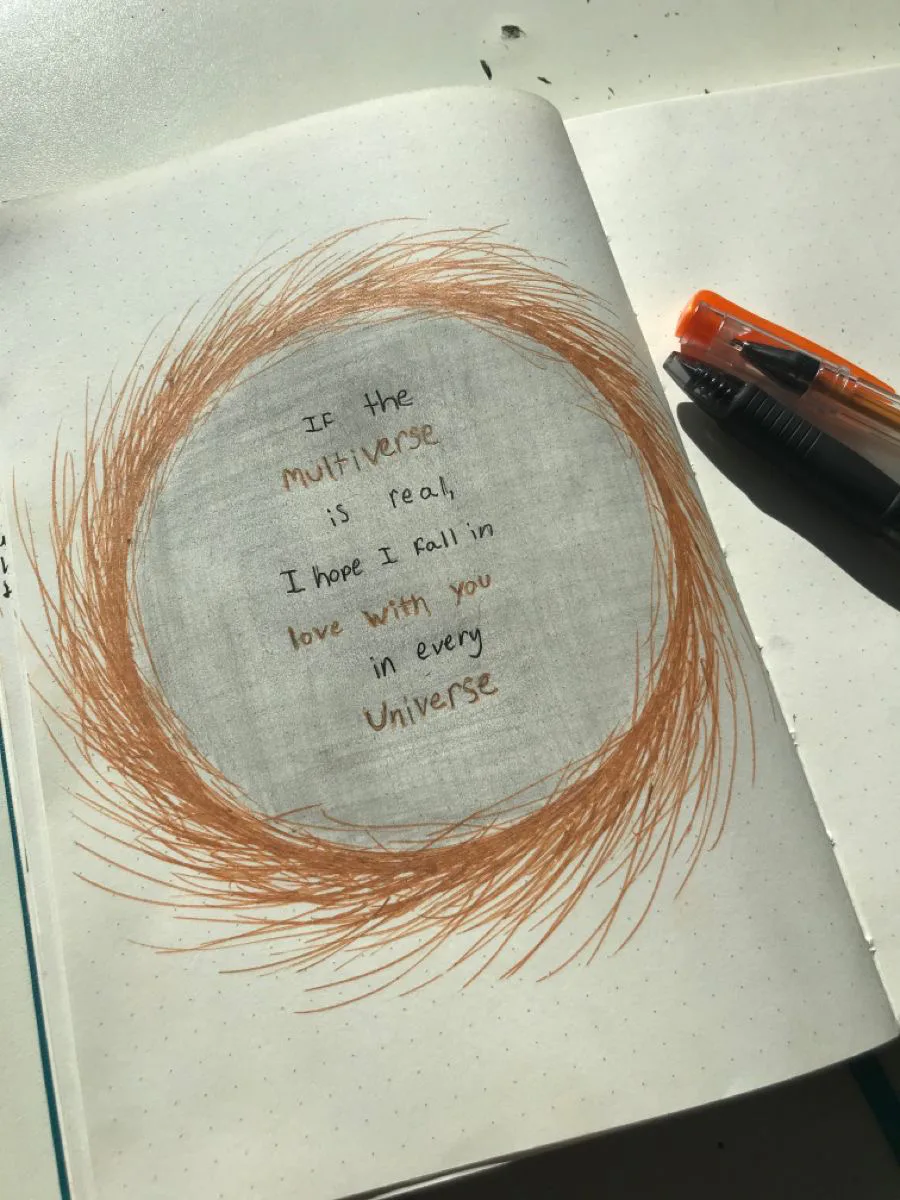 If the
multiverse
is real,
I hope I fall in
love with you
in every
Universe